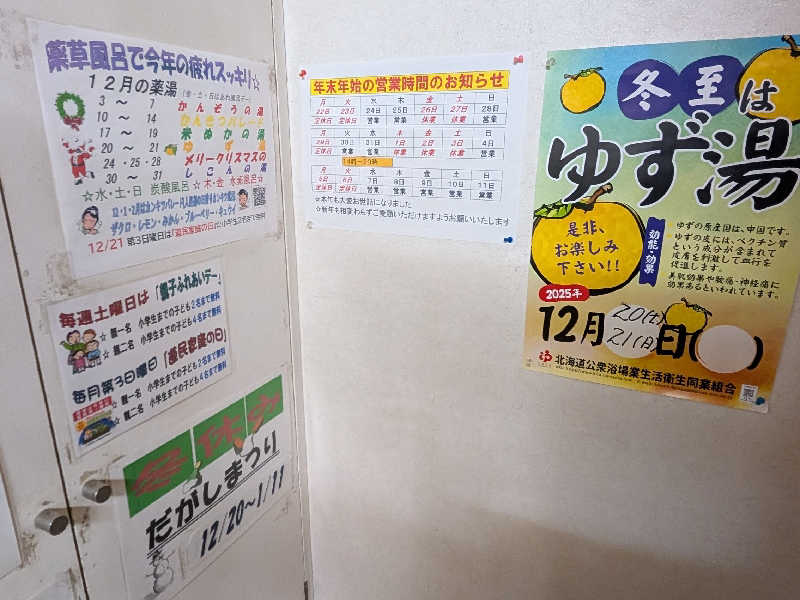 薬草風呂で今年の疲れスッキリ☆
12月の薬湯
3 ～ 7 かんぞうの湯
10 ～ 14
17 ～ 19 米ぬかの湯
20 ～ 21 ゆず湯
24・25・28 メリークリスマスの
30 ～ 31 しこんの湯
☆水・土・日 炭酸風呂 ☆木・金 水素風呂
ザクロ・レモン・みかん・ブルーベリー・キュウイ
12/21 第3日曜日は「道民家族の日」
毎週土曜日は「親子ふれあいデー」
☆ 親一名 小学生までの子ども2名まで無料
☆ 親二名 小学生までの子ども4名まで無料
毎月第3日曜日「道民家族の日」
☆ 親一名 小学生までの子ども2名まで無料
☆ 親二名 小学生までの子ども4名まで無料
冬休み
だがしまつり
12/20～1/11
年末年始の営業時間のお知らせ
月 火 水 木 金 土 日
22日 23日 24日 25日 26日 27日 28日
定休日 定休日 営業 営業 休業 休業 営業
月 火 水 木 金 土 日
29日 30日 31日 1日 2日 3日 4日
定休日 営業 営業 休業 休業 休業 営業
月 火 水 木 金 土 日
5日 6日 7日 8日 9日 10日 11日
定休日 定休日 営業 営業 営業 営業 営業
☆本年も大変お世話になりました
☆新年も相変わらずご愛顧いただけますようお願いいたします
冬至は
ゆず湯
是非、
お楽しみ
下さい!!
効能・効果
ゆずの原産国は、中国です。
ゆずの皮には、ペクチン質
という成分が含まれて
皮膚を刺激して血行を
促進します。
美肌効果や鎮痛・神経痛に
効果あるといわれています。
2025年
12月20(土)21(日)日( )
ゆ 北海道公衆浴場業生活衛生同業組合